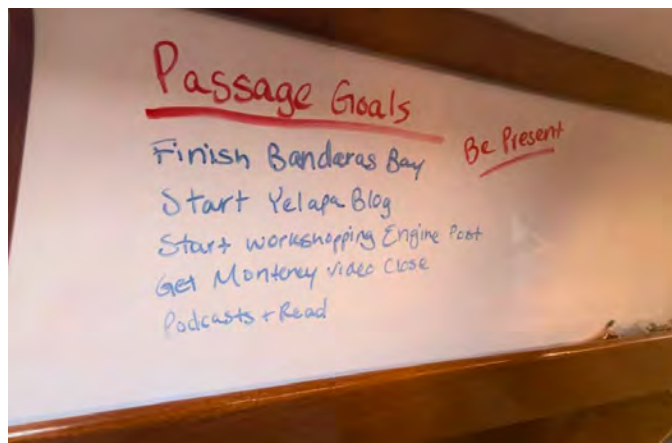 Passage Goals
Be Present
Finish Banderas Bay
Start Yelapa Blog
Start workshopping Engine Post
Get Monterey video Close
Podcasts + Read